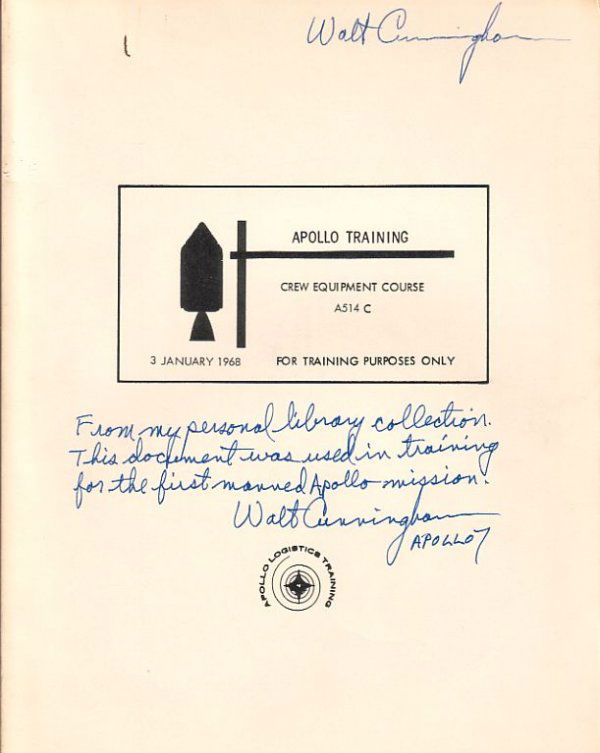 Walt Cunningham
APOLLO TRAINING
CREW EQUIPMENT COURSE
A514 C
3 JANUARY 1968 FOR TRAINING PURPOSES ONLY
From my personal library collection.
This document was used in training
for the first manned Apollo mission.
Walt Cunningham
APOLLO 7
APOLLO LOGISTICS TRAINING